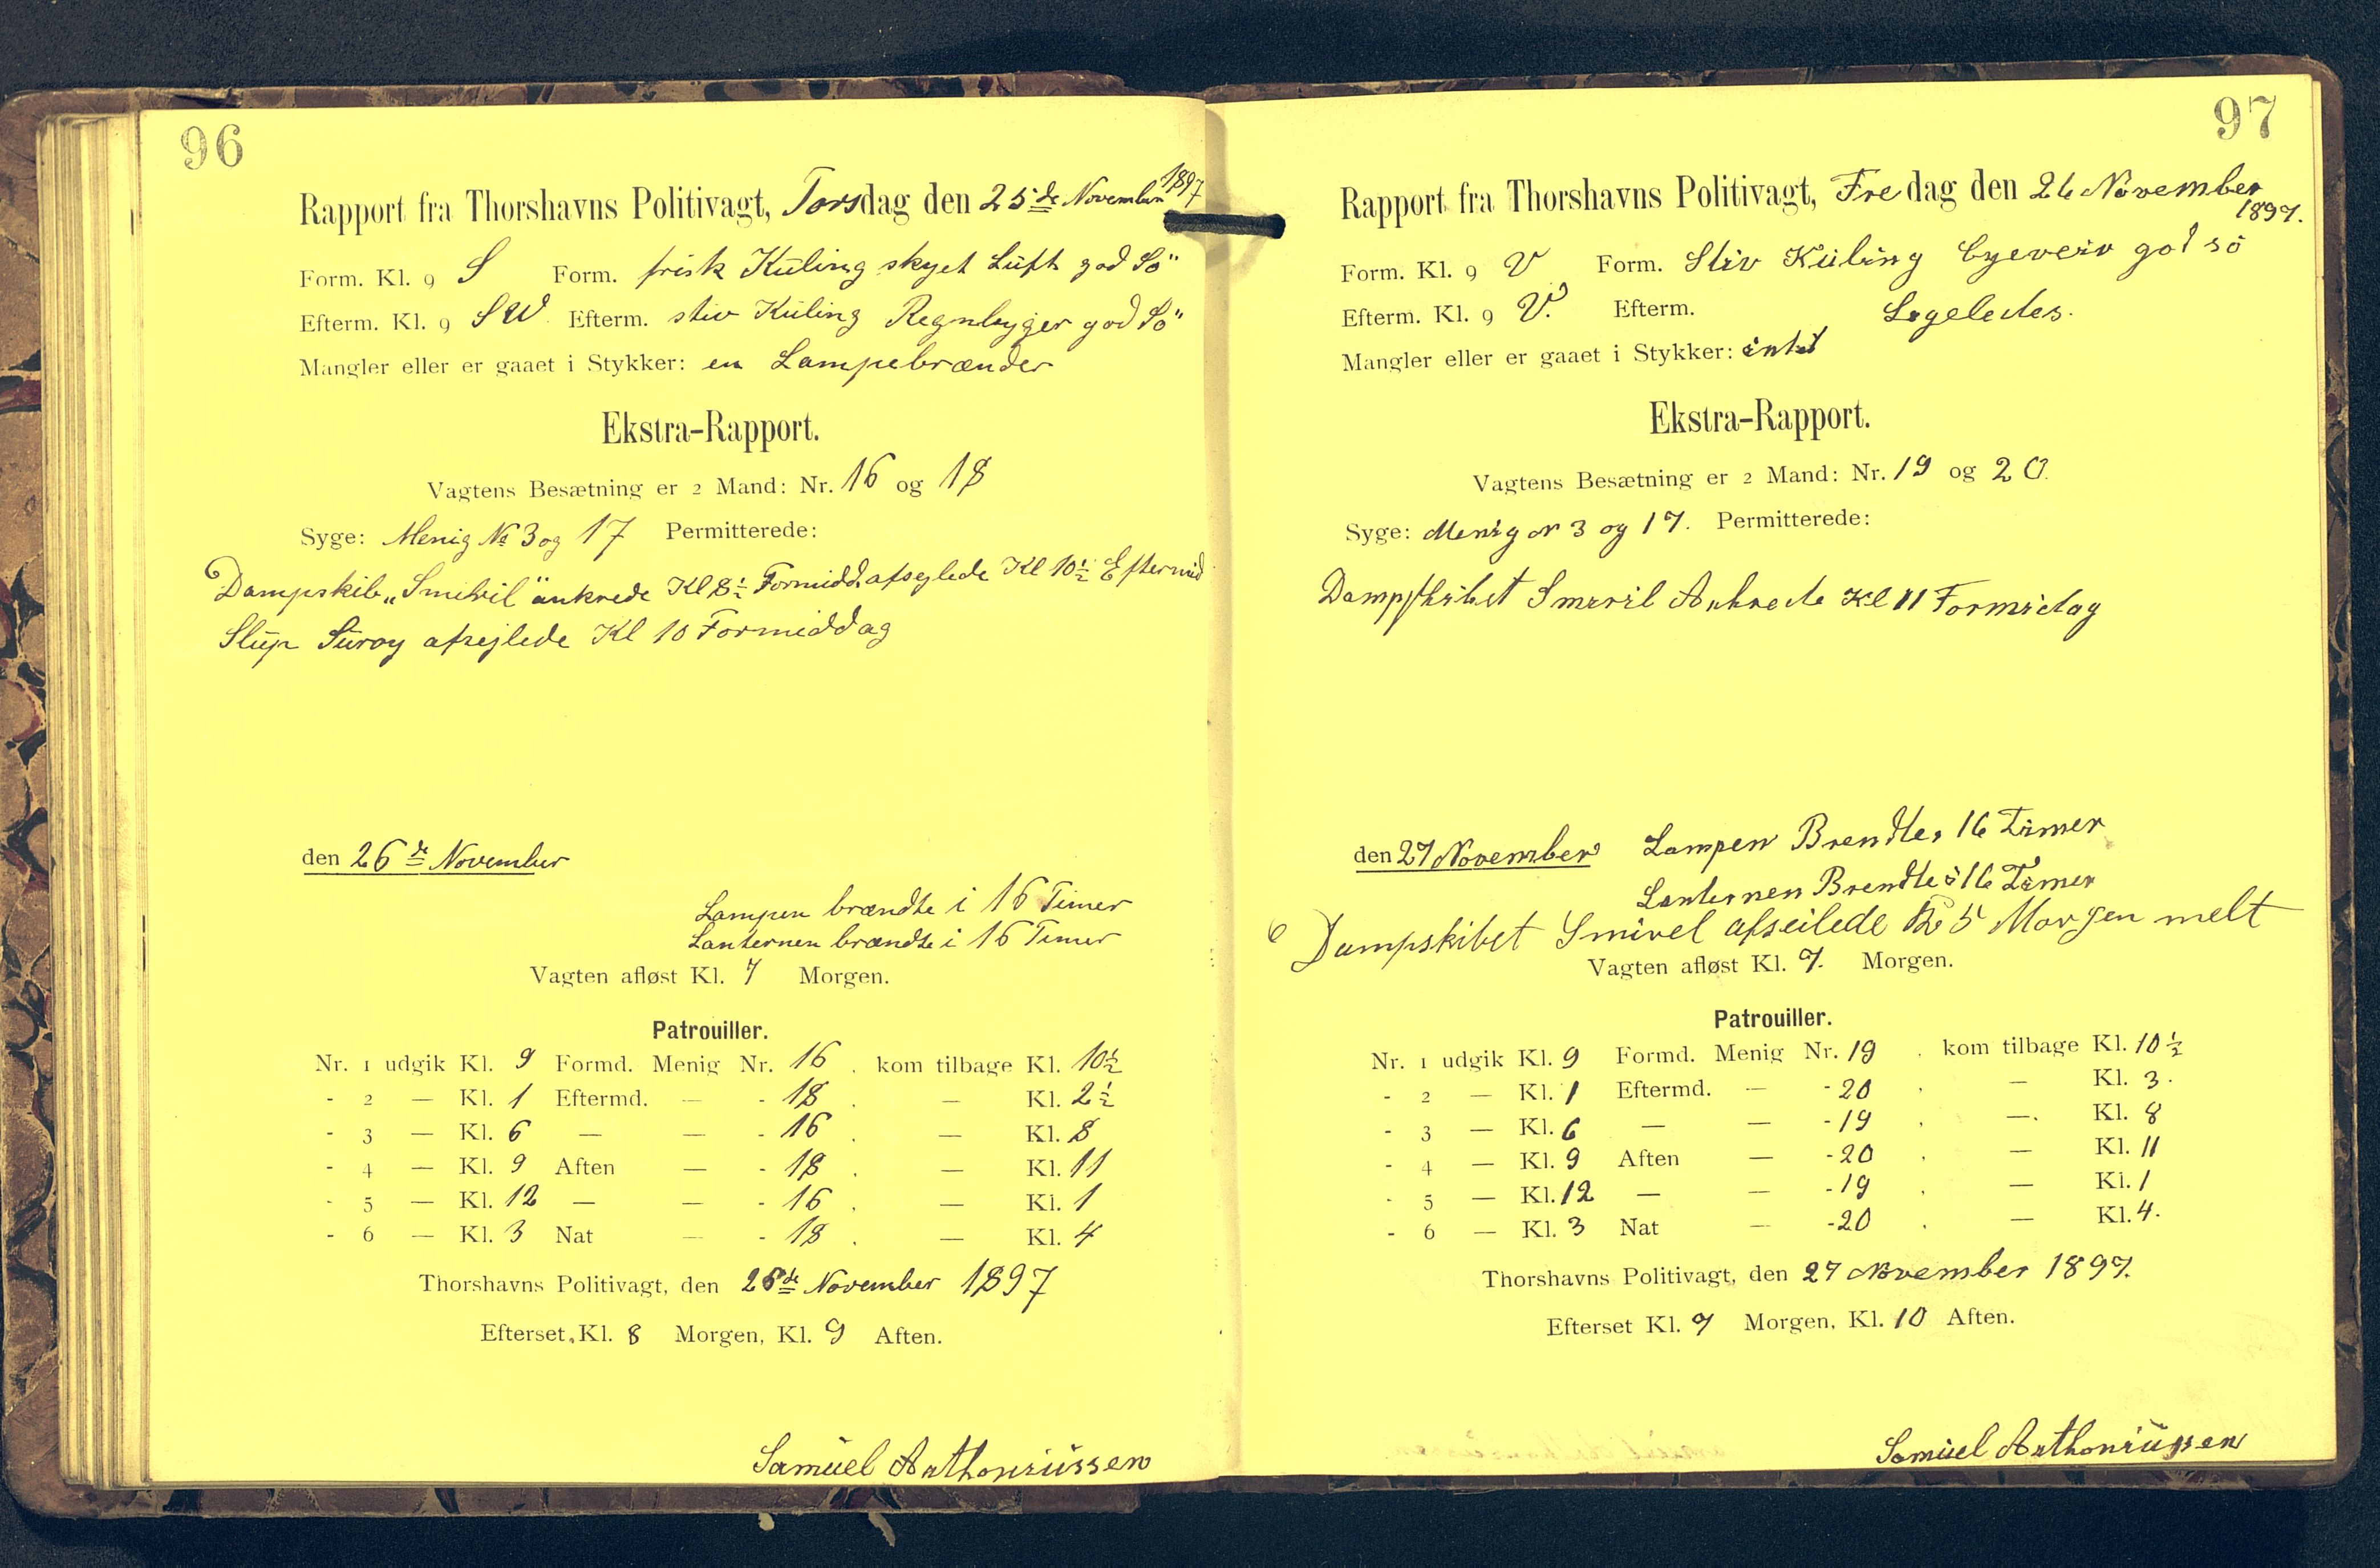 96
Rapport fra Thorshavns Politivagt, Torsdag den 25de November 1897
Form. Kl. 9 S Form. frisk Kuling skyet Luft god Sö"
Efterm. Kl. 9 SW. Efterm. stiv Kuling Regnbyger god Sö"
Mangler eller er gaaet i Stykker: en Lampebrænder
Ekstra-Rapport.
Vagtens Besætning er 2 Mand: Nr. 16 og 18
Syge: Menig № 3 og 17 Permitterede:
Dampskib „Smiril" ankrede Kl 8½ Formidd. afseglede Kl 10½ Eftermid
Slup Suroy afsejlede Kl 10 Formiddag
den 26de November
Lampen brændte i 16 Timer
Lanternen brændte i 16 Timer
Vagten afløst Kl. 7 Morgen.
Patrouiller.
Nr. 1 udgik Kl. 9 Formd. Menig Nr. 16 . kom tilbage Kl. 10½
- 2 — Kl. 1 Eftermd. — - 18 . — Kl. 2½
- 3 — Kl. 6 — — - 16 . — Kl. 8
- 4 — Kl. 9 Aften — - 18 . — Kl. 11
- 5 — Kl. 12 — — - 16 . — Kl. 1
- 6 — Kl. 3 Nat — - 18 . — Kl. 4
Thorshavns Politivagt, den 26de November 1897
Efterset Kl. 8 Morgen, Kl. 9 Aften.
Samuel Anthoniussen
97
Rapport fra Thorshavns Politivagt, Fredag den 26 November 1897.
Form. Kl. 9 V Form. Stiv Kuling byeveir god sö
Efterm. Kl. 9 V. Efterm. Ligeledes.
Mangler eller er gaaet i Stykker: intet
Ekstra-Rapport.
Vagtens Besætning er 2 Mand: Nr. 19 og 20.
Syge: Menig N 3 og 17. Permitterede:
Dampskibet Smiril Ankrede Kl 11 Formidag
den 27 November Lampen Brendte i 16 Timer
Lanternen Brendte i 16 Timer
Dampskibet Smirel afseilede Kl 5 Morgen melt
Vagten afløst Kl. 7. Morgen.
Patrouiller.
Nr. 1 udgik Kl. 9 Formd. Menig Nr. 19 . kom tilbage Kl. 10½
- 2 — Kl. 1 Eftermd. — - 20 . — Kl. 3.
- 3 — Kl. 6 — — - 19 . — Kl. 8
- 4 — Kl. 9 Aften — - 20 . — Kl. 11
- 5 — Kl. 12 — — - 19 . — Kl. 1
- 6 — Kl. 3 Nat — - 20 . — Kl. 4.
Thorshavns Politivagt, den 27 November 1897.
Efterset Kl. 7 Morgen, Kl. 10 Aften.
Samuel Anthoniussen